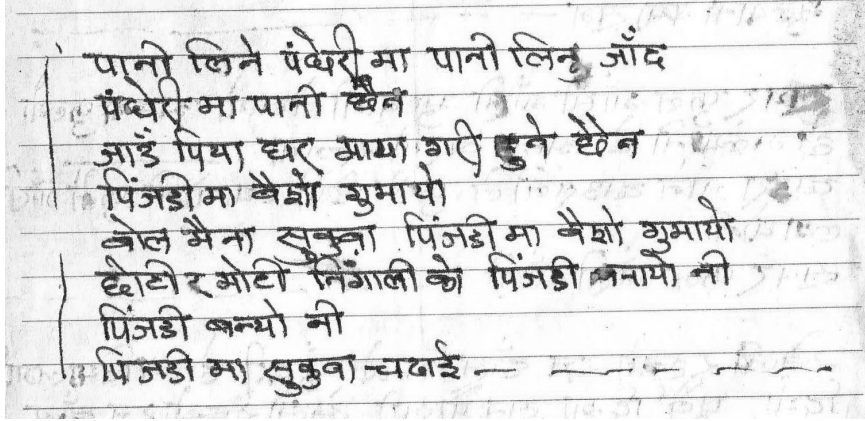 पानी लिने पंधेरी मा पानी लिनु जाँद
पंधेरी मा पानी छैन
जाउँ पिया घर माया गरी हुने छैन
पिंजडी मा बैशो गुमायो
बोल मैना सुकुवा पिंजडी मा बैशो गुमायो
छोटी र मोटी निंगाली को पिंजडी बनायो नी
पिंजडी बन्यो नी
पिंजडी मा सुकुवा चढाई — — — — — —